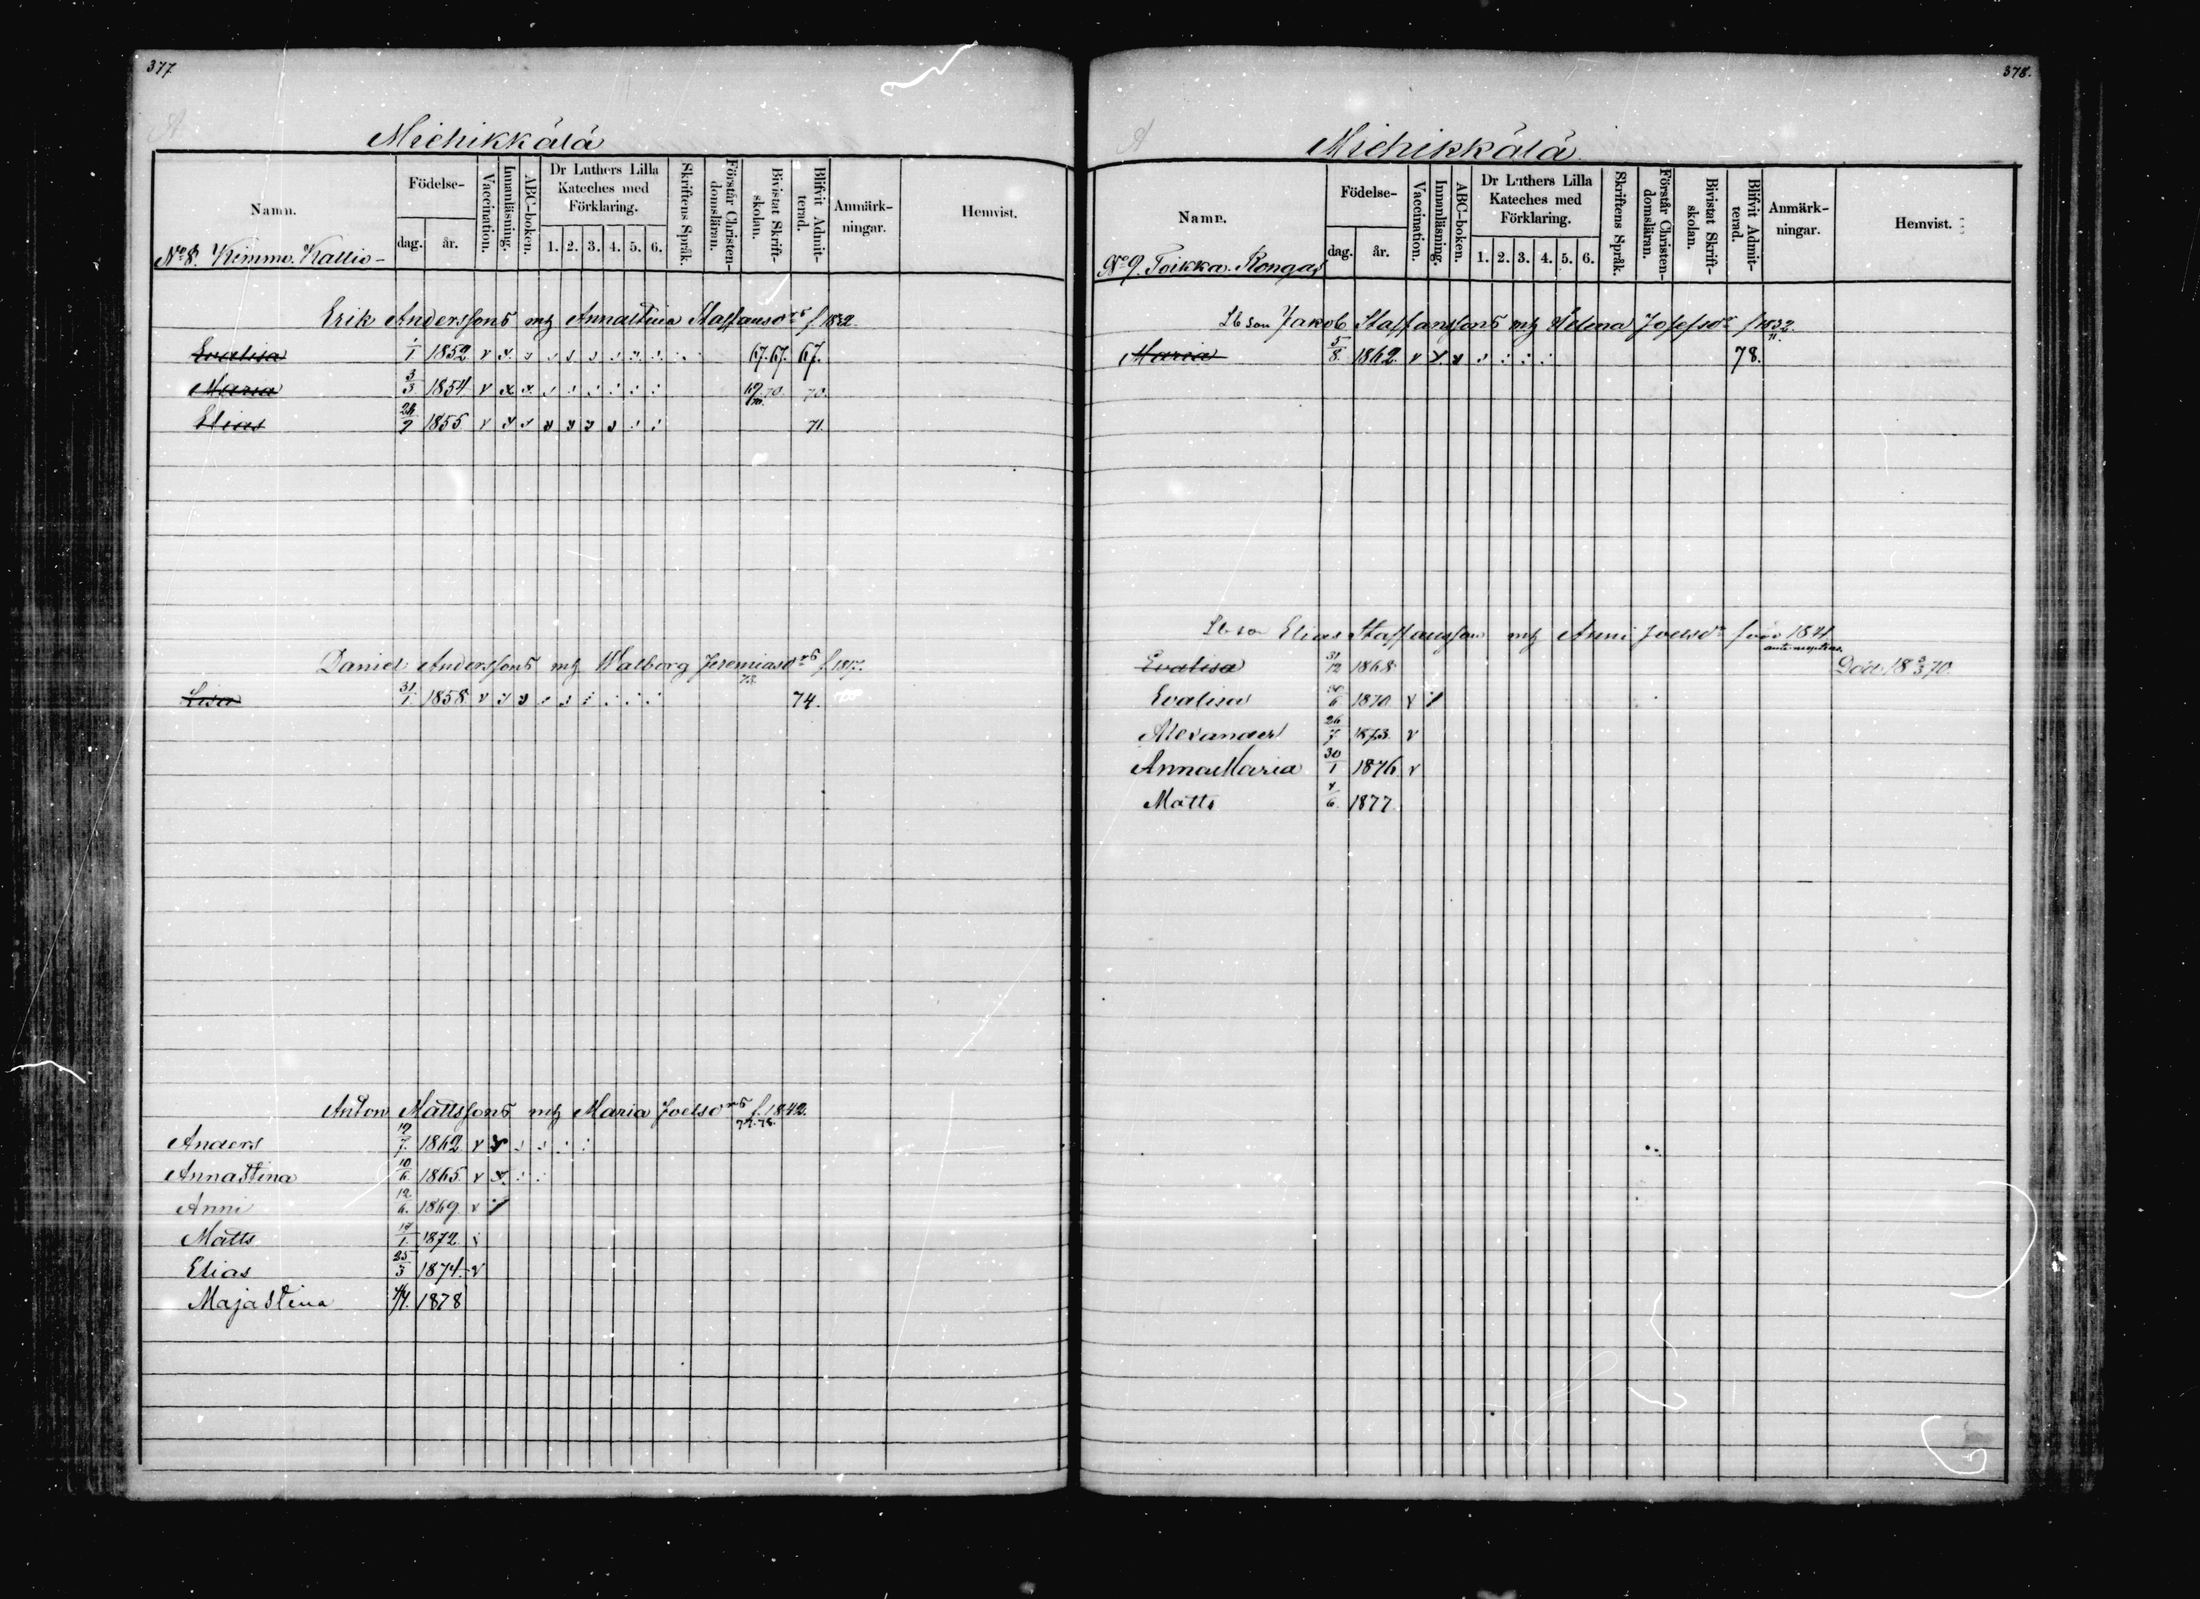 377
Michikkälä
Namn.
Födelse-
dag.
år.
Vaccination.
Innanläsning.
ABC-boken.
Dr Luthers Lilla Kateches med Förklaring.
1. 2. 3. 4. 5. 6.
Skriftens Språk.
Förstår Christen-domsläran.
Bivistat Skrift-skolan.
Blifvit Admit-terad.
Anmärk-ningar.
Hemvist.
No 8. Kimmo. Kallio-
Erik Anderssons mh Annastina Staffansdrs f 1832.
Evalisa 1/1 1852 v x 67. 67. 67.
Maria 3/3 1854 v x x 70. 70.
Elias 1855 v x 71.
Daniel Anderssons mh Walborg Jeremiasdrs f 1817.
73.
Lisa 31/1. 1858 v 74.
Anton Mattssons mh Maria Joelsdrs f. 1842.
77. 78.
Anders 1862 v x
Annastina 10/6 1865. v x
Anni 12/6. 1869. v
Matts 17/1. 1872.
Elias 25/3 1874. v
Majastina 1878
378.
Michikkälä
Namn.
Födelse-
dag.
år.
Vaccination.
Innanläsning.
ABC-boken.
Dr Luthers Lilla Kateches med Förklaring.
1. 2. 3. 4. 5. 6.
Skriftens Språk.
Förstår Christen-domsläran.
Bivistat Skrift-skolan.
Blifvit Admit-terad.
Anmärk-ningar.
Hemvist.
No 9. Toikka. Kongas
Lb son Jakob Staffanssons mh Helena Josefsdr f 1832.
Maria 5/8. 1862. v x x 78.
Lb son Elias Staffansson mh Anni Joelsdr 1841.
Evalisa 31/12 1868. Död 18 2/3 70.
Evalisa 30/6 1870 v
Alexander 26/7 1873. v
AnnaMaria 30/1 1876 v
Matts 1877.